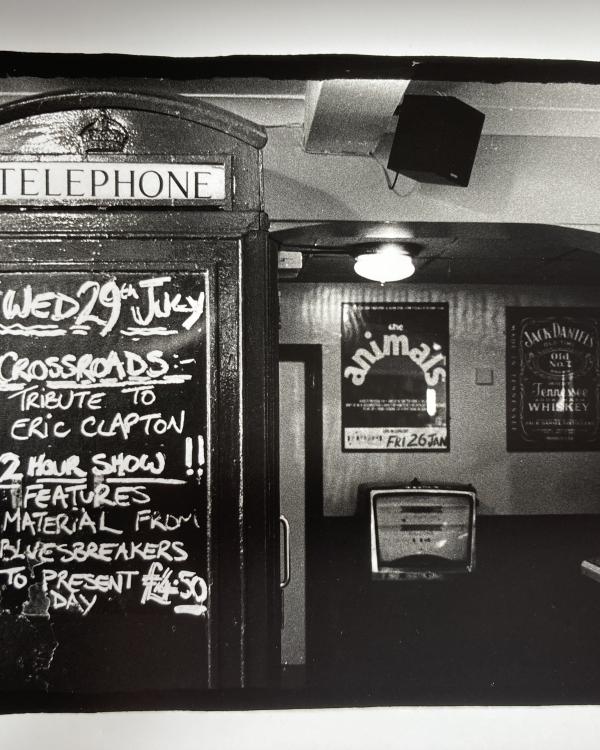 TELEPHONE
WED 29th JULY
CROSSROADS:-
TRIBUTE TO
ERIC CLAPTON
2 HOUR SHOW !!
FEATURES
MATERIAL FROM
BLUESBREAKERS
TO PRESENT £4.50
DAY
the
animals
FRI 26 JAN
JACK DANIEL'S
Old
No. 7
Tennessee
WHISKEY